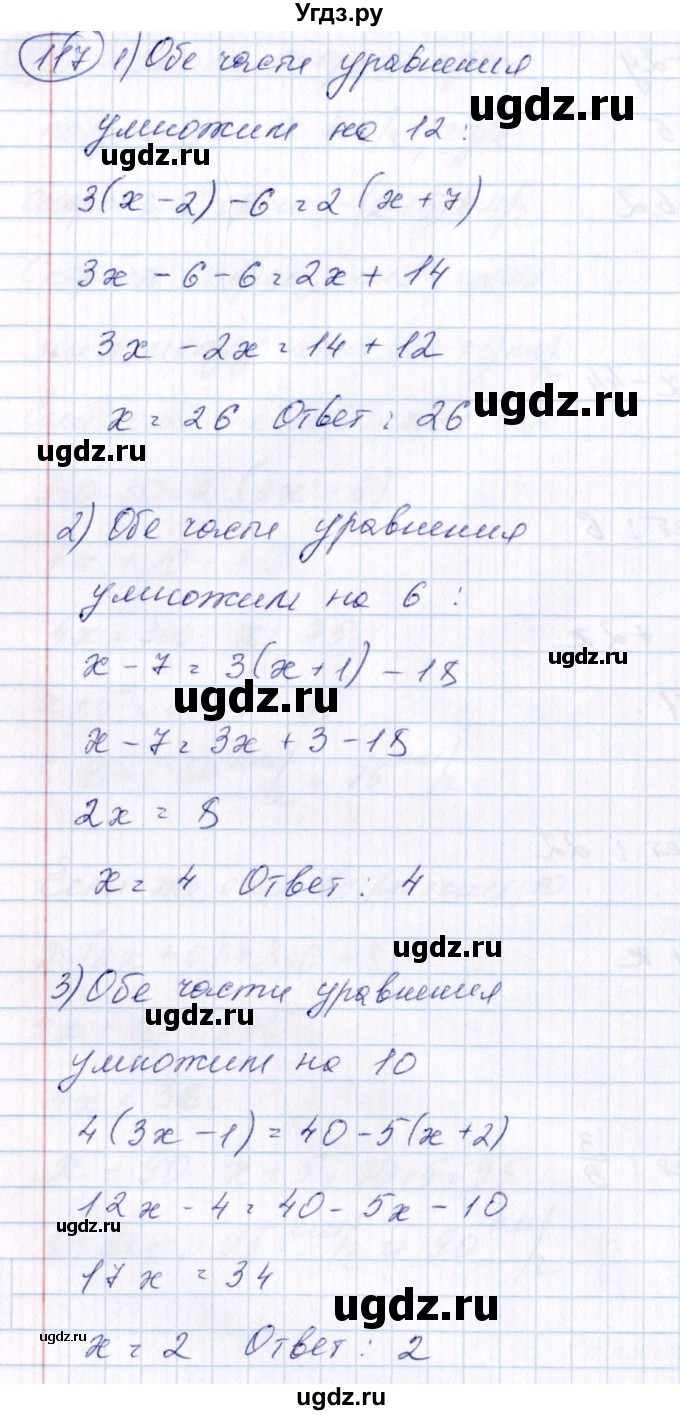 Угдз.ру
117 1) Обе части уравнения
ugdz.ru
умножим на 12:
ugdz.ru
3(x - 2) - 6 = 2(x + 7)
3x - 6 - 6 = 2x + 14
3x - 2x = 14 + 12
ugdz.ru
x = 26 Ответ: 26
ugdz.ru
2) Обе части уравнения
умножим на 6:
x - 7 = 3(x + 1) - 18
ugdz.ru
ugdz.ru
x - 7 = 3x + 3 - 18
2x = 8
x = 4 Ответ: 4
ugdz.ru
3) Обе части уравнения
ugdz.ru
умножим на 10
4(3x - 1) = 40 - 5(x + 2)
12x - 4 = 40 - 5x - 10
ugdz.ru
17x = 34
ugdz.ru
x = 2 Ответ: 2
ugdz.ru
ugdz.ru